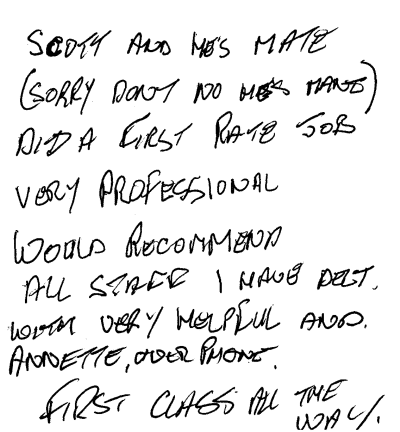 SCOTT AND HE'S MATE
(SORRY DON'T NO HE'S NAME)
DID A FIRST RATE JOB
VERY PROFESSIONAL
WOULD RECOMMEND
ALL STAFF I HAVE DELT.
WITH VERY HELPFUL AND.
ANNETTE, OVER PHONE.
FIRST CLASS ALL THE
WAY.